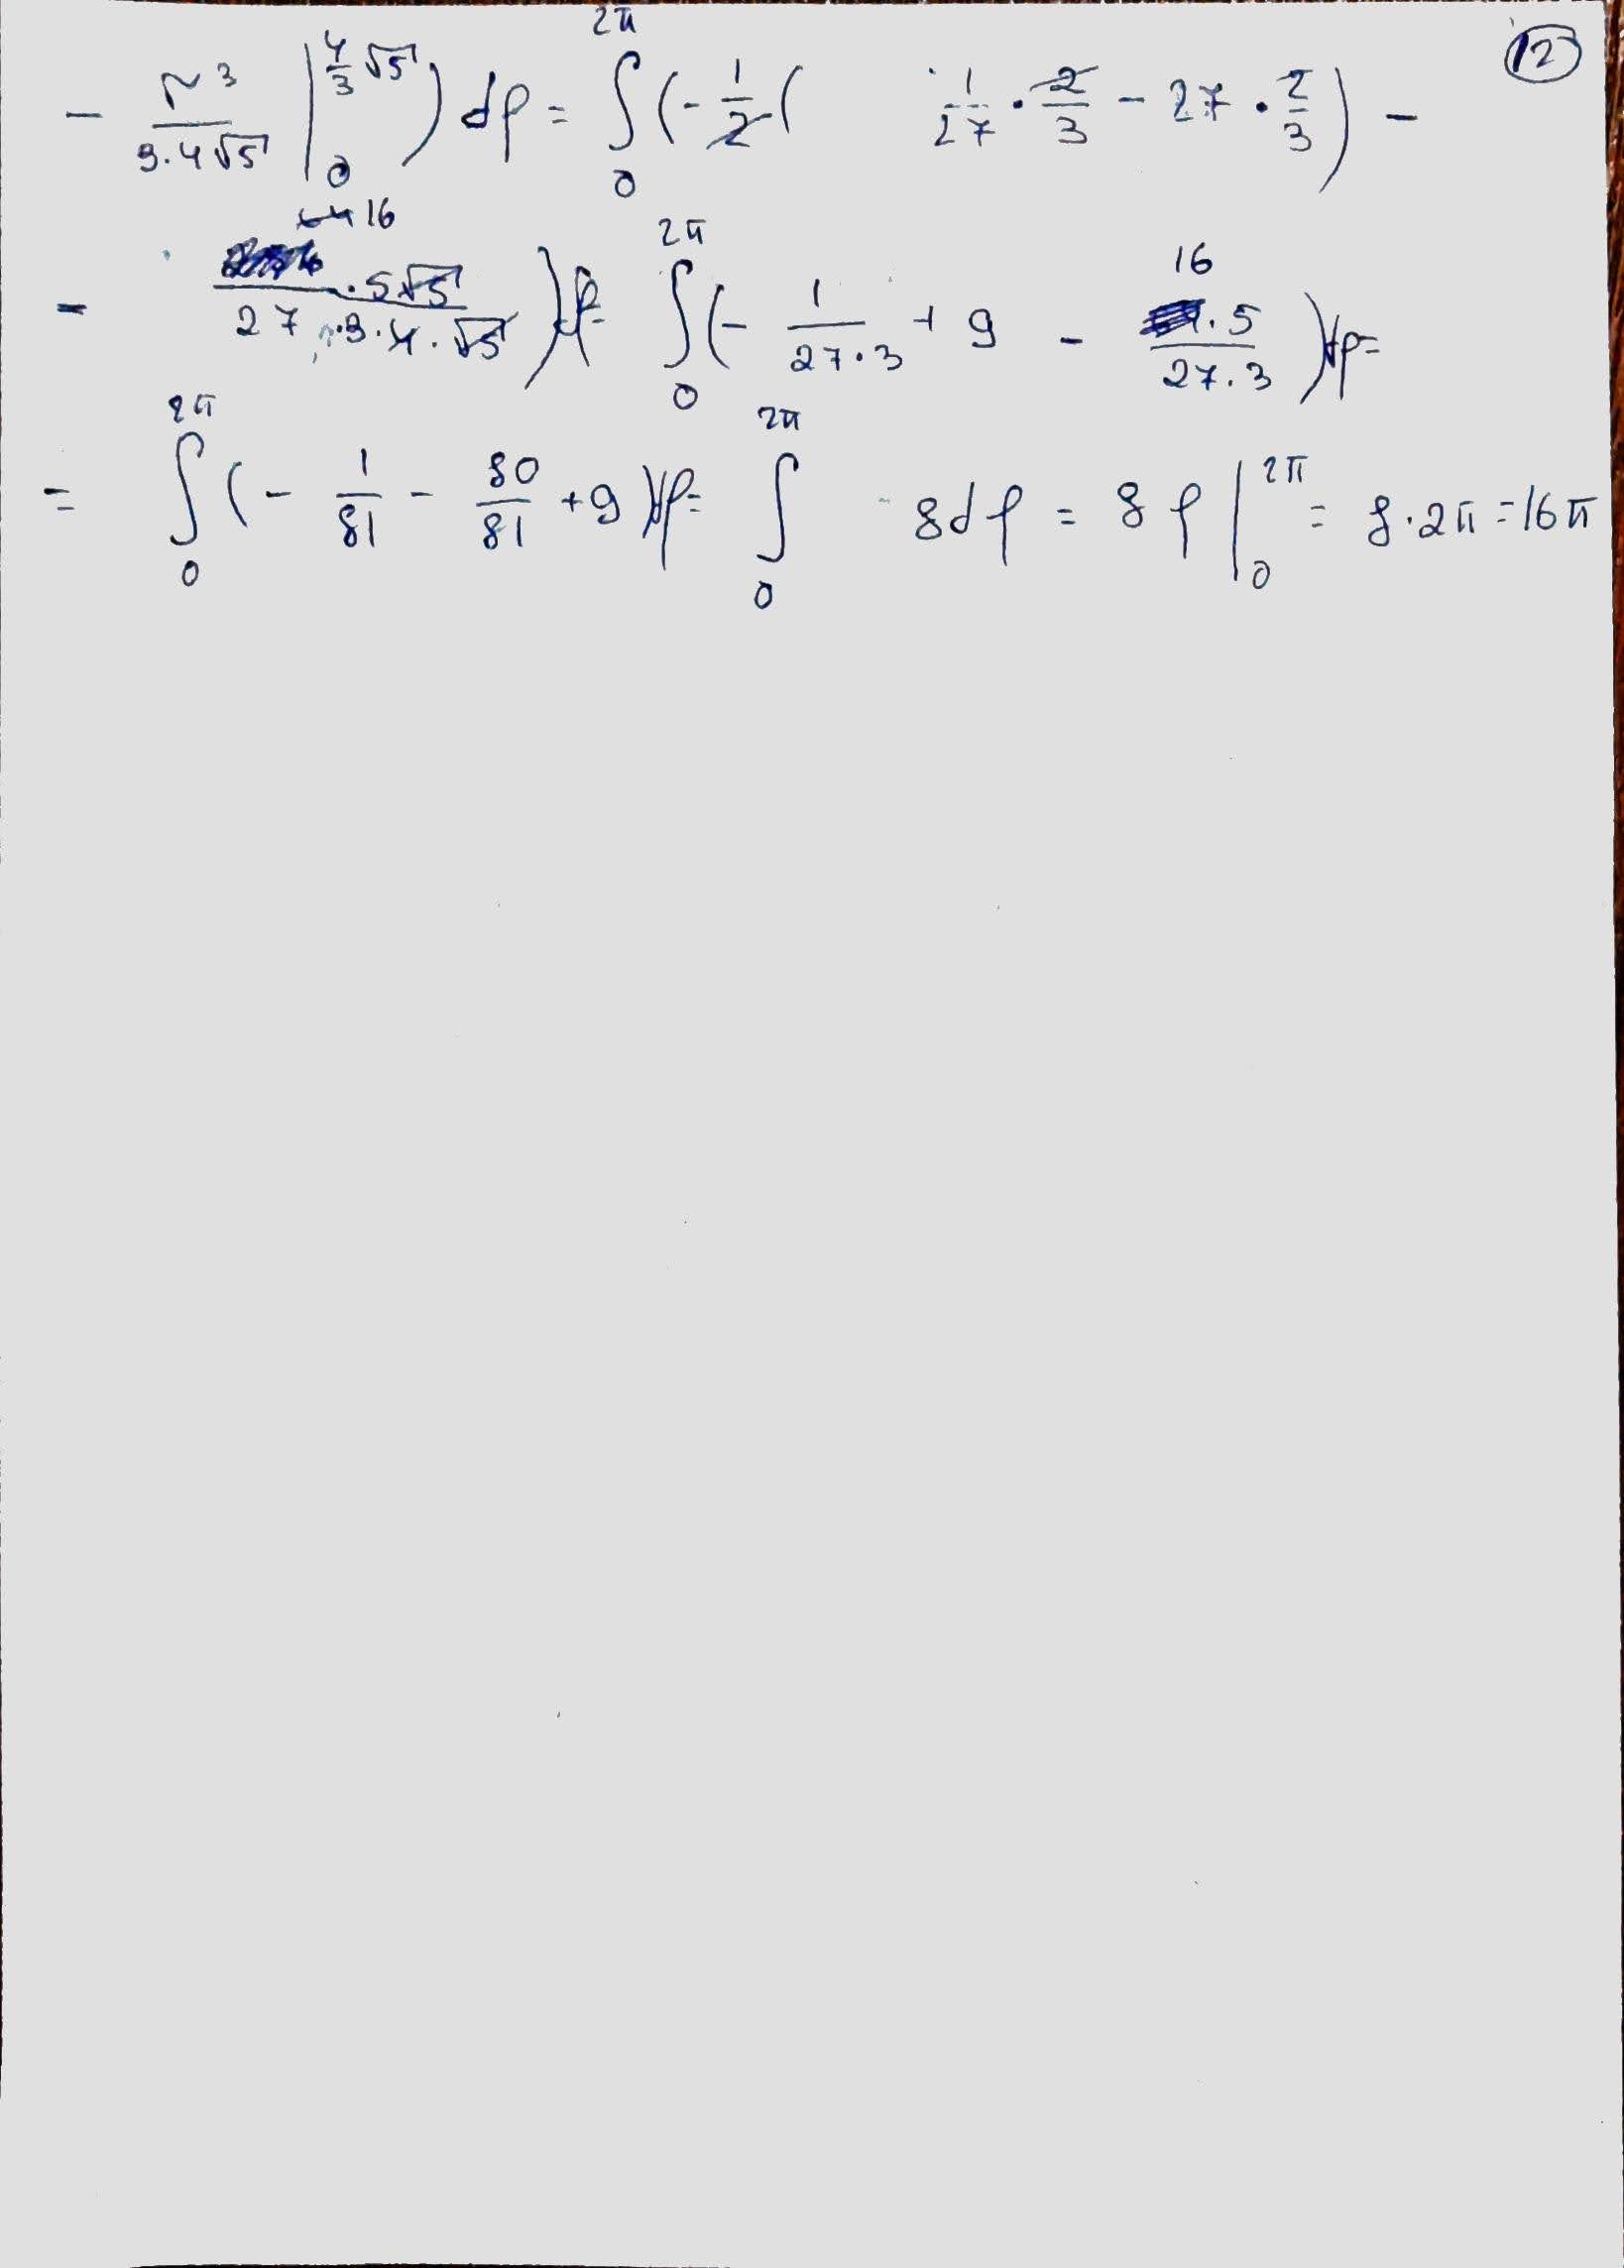 ⑫
- r³/(3·4√5) |₀^{4/3 √5} ) dφ = ∫₀^{2π} (- 1/2 ( 1/27 · 2/3 - 27 · 2/3 ) -
- 16 · 5√5 / (27 · 3 · 4 · √5) ) dφ = ∫₀^{2π} (- 1/(27·3) + 9 - 16·5/(27·3) ) dφ =
= ∫₀^{2π} (- 1/81 - 80/81 + 9 ) dφ = ∫₀^{2π} 8dφ = 8φ |₀^{2π} = 8·2π = 16π